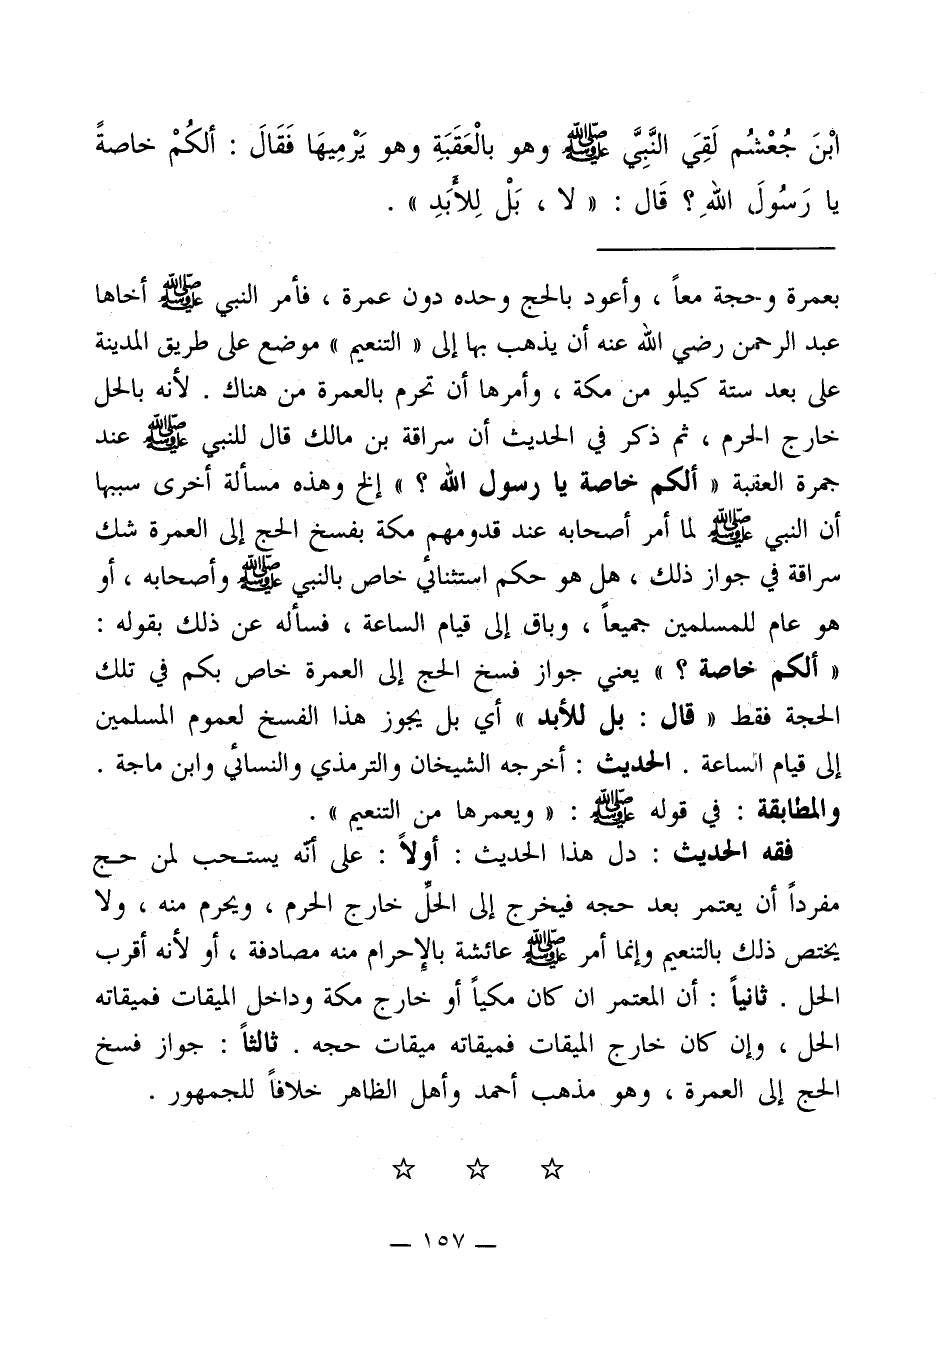 ابْنَ جُعْشُم لَقِيَ النَّبِيَّ ﷺ وهو بالْعَقَبَةِ وهو يَرْمِيهَا فَقَالَ : ألكُمْ خاصةً
يا رَسُولَ اللهِ ؟ قَال : « لا ، بَلْ لِلأَبَدِ » .
بعمرة وحجة معاً ، وأعود بالحج وحده دون عمرة ، فأمر النبي ﷺ أخاها
عبد الرحمن رضي الله عنه أن يذهب بها إلى « التنعيم » موضع على طريق المدينة
على بعد ستة كيلو من مكة ، وأمرها أن تحرم بالعمرة من هناك . لأنه بالحل
خارج الحرم ، ثم ذكر في الحديث أن سراقة بن مالك قال للنبي ﷺ عند
جمرة العقبة « ألكم خاصة يا رسول الله ؟ » إلخ وهذه مسألة أخرى سببها
أن النبي ﷺ لما أمر أصحابه عند قدومهم مكة بفسخ الحج إلى العمرة شك
سراقة في جواز ذلك ، هل هو حكم استثنائي خاص بالنبي ﷺ وأصحابه ، أو
هو عام للمسلمين جميعاً ، وباق إلى قيام الساعة ، فسأله عن ذلك بقوله :
« ألكم خاصة ؟ » يعني جواز فسخ الحج إلى العمرة خاص بكم في تلك
الحجة فقط « قال : بل للأبد » أي بل يجوز هذا الفسخ لعموم المسلمين
إلى قيام الساعة . الحديث : أخرجه الشيخان والترمذي والنسائي وابن ماجة .
والمطابقة : في قوله ﷺ : « ويعمرها من التنعيم » .
فقه الحديث : دل هذا الحديث : أولاً : على أنّه يستحب لمن حج
مفرداً أن يعتمر بعد حجه فيخرج إلى الحلِّ خارج الحرم ، ويحرم منه ، ولا
يختص ذلك بالتنعيم وإنما أمر ﷺ عائشة بالإحرام منه مصادفة ، أو لأنه أقرب
الحل . ثانياً : أن المعتمر ان كان مكياً أو خارج مكة وداخل الميقات فميقاته
الحل ، وإن كان خارج الميقات فميقاته ميقات حجه . ثالثاً : جواز فسخ
الحج إلى العمرة ، وهو مذهب أحمد وأهل الظاهر خلافاً للجمهور .
☆ ☆ ☆
— ١٥٧ —